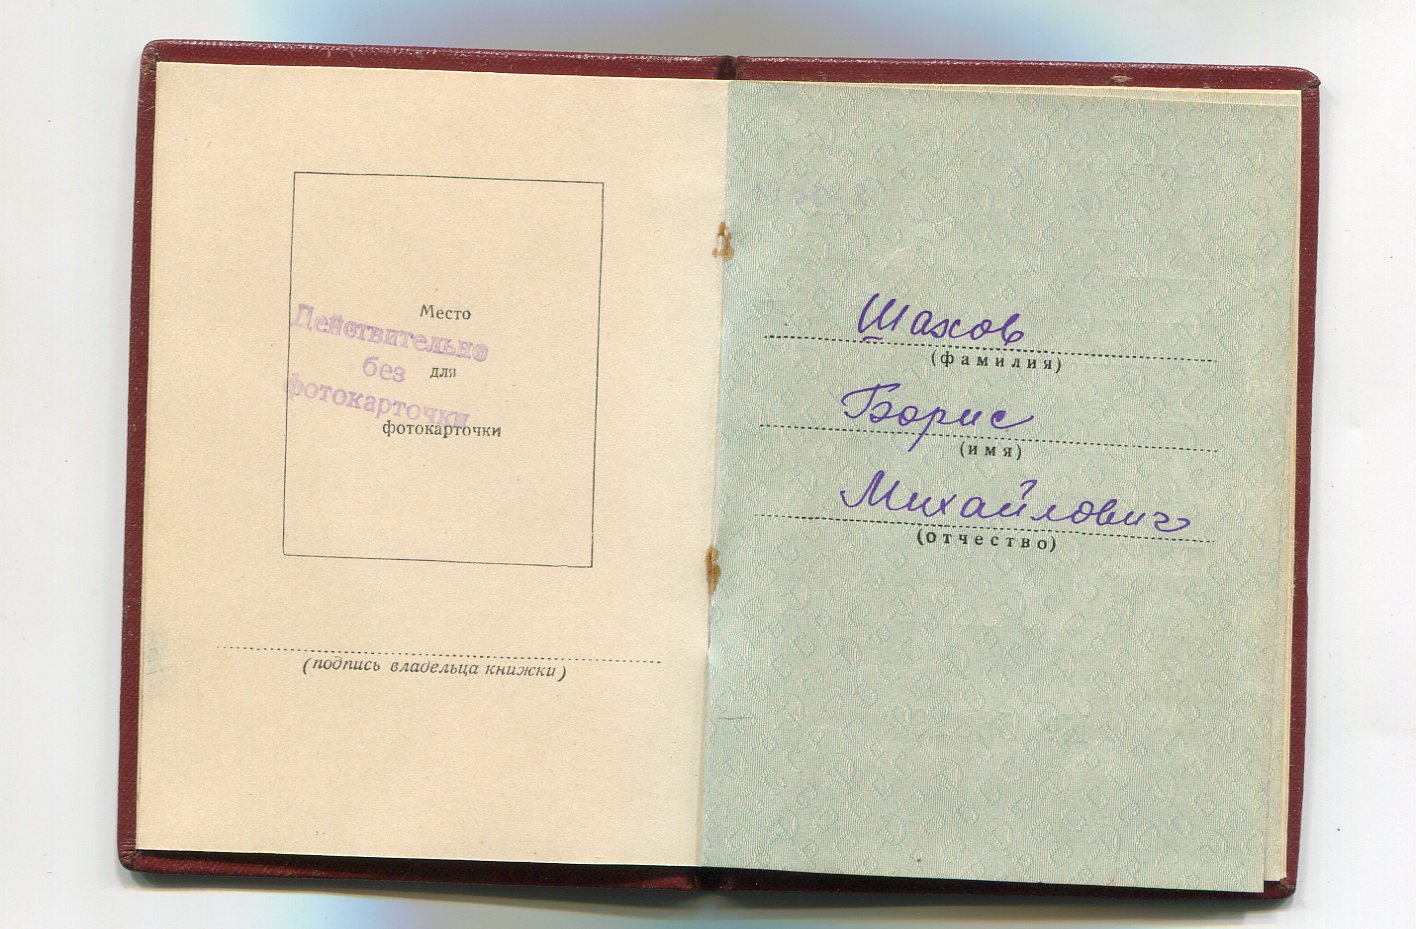 Место
Действительно
без
для
фотокарточки
фотокарточки
(подпись владельца книжки)
Шахов
(фамилия)
Борис
(имя)
Михайлович
(отчество)